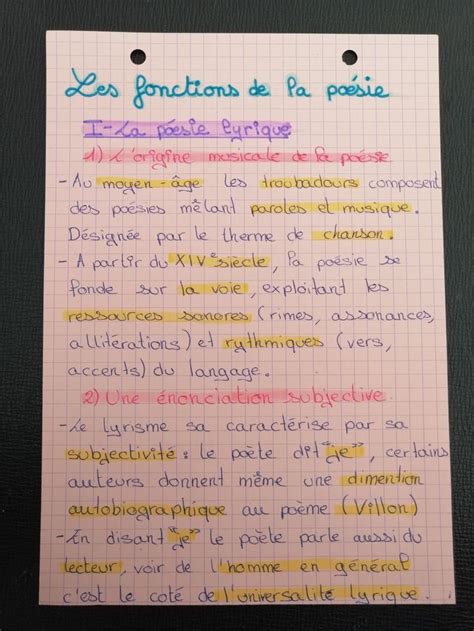 Les fonctions de la poésie
I-La poésie lyrique
1) L'origine musicale de la poésie
- Au moyen-âge les troubadours composent
des poésies mêlant paroles et musique.
Désignée par le therme de chanson.
- A partir du XIVe siècle, la poésie se
fonde sur la voie, exploitant les
ressources sonores (rimes, assonances,
allitérations) et rythmiques (vers,
accents) du langage.
2) Une énonciation subjective.
-Le lyrisme sa caractérise par sa
subjectivité : le poète dit "je", certains
auteurs donnent même une dimention
autobiographique au poème (Villon)
-En disant "je" le poète parle aussi du
lecteur, voir de l'homme en général
c'est le coté de l'universalité lyrique.